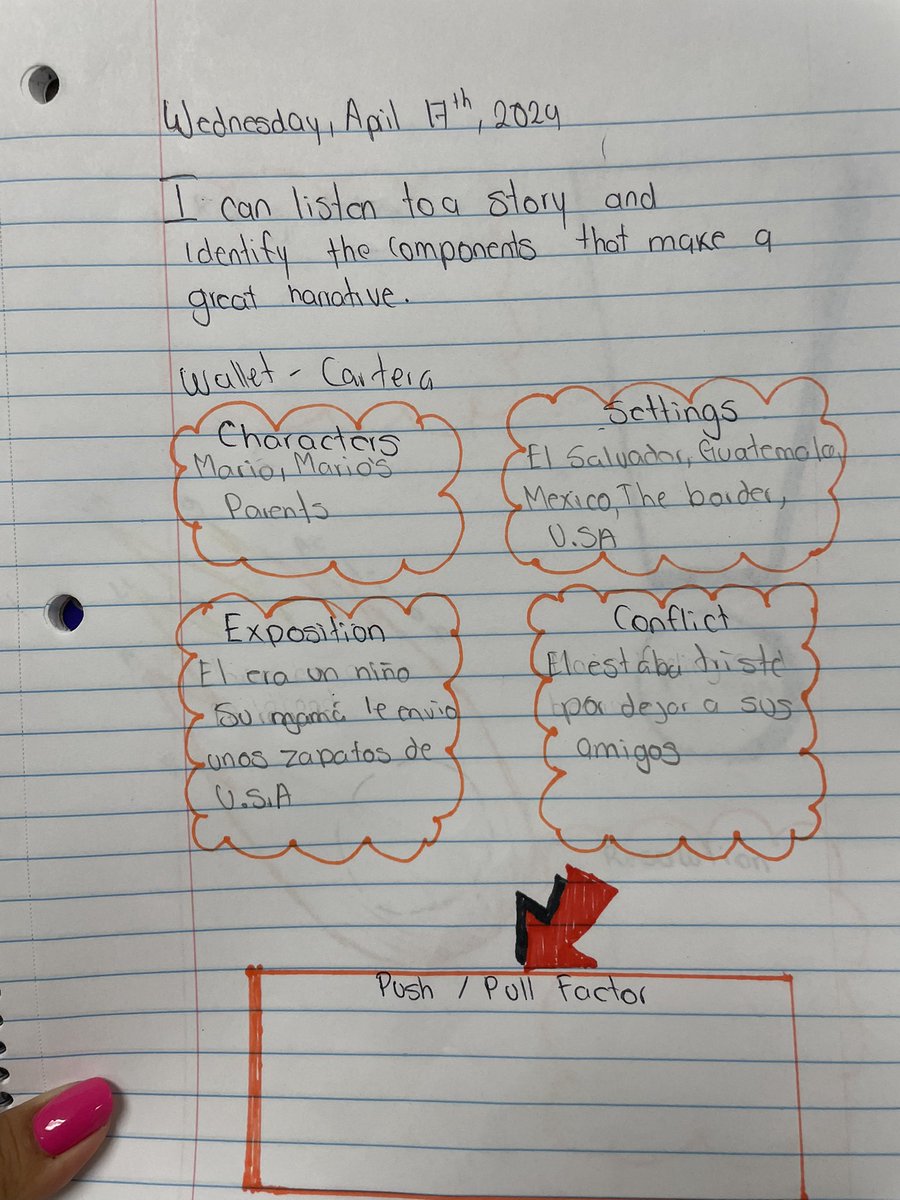 Wednesday, April 17th, 2024
I can listen to a story and
identify the components that make a
great narrative.
Wallet - Cartera
Characters
Mario, Mario's
Parents
Settings
El Salvador, Guatemala,
Mexico, The border,
U.SA
Exposition
El era un niño
Su mamá le envio
unos zapatos de
U.S.A
Conflict
El estaba triste
por dejar a sus
amigos
Push / Pull Factor